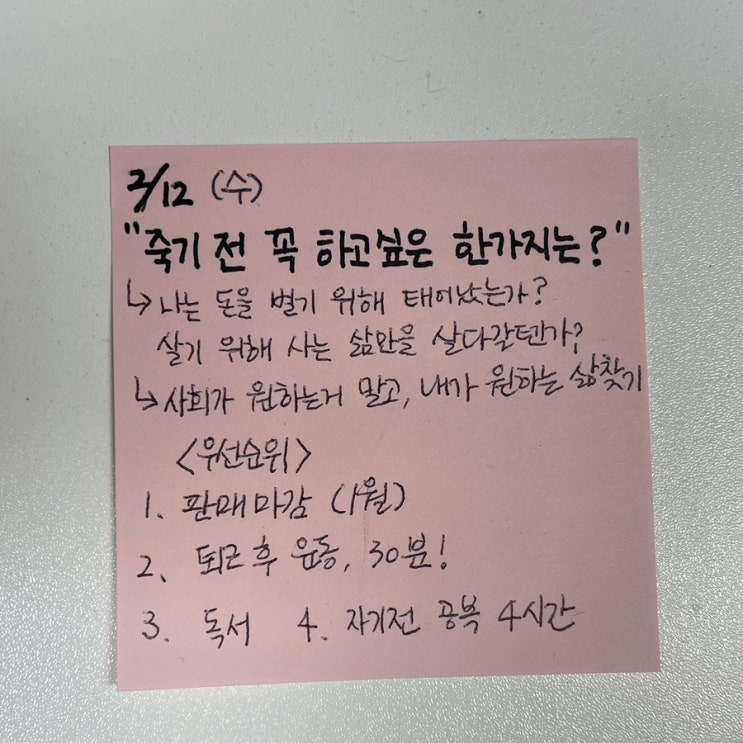 2/12 (수)
"죽기 전 꼭 하고싶은 한가지는?"
↳ 나는 돈을 벌기 위해 태어났는가?
살기 위해 사는 삶만을 살다갈텐가?
↳ 사회가 원하는거 말고, 내가 원하는 삶찾기
<우선순위>
1. 판매마감 (1월)
2. 퇴근 후 운동, 30분!
3. 독서 4. 자기전 공복 4시간